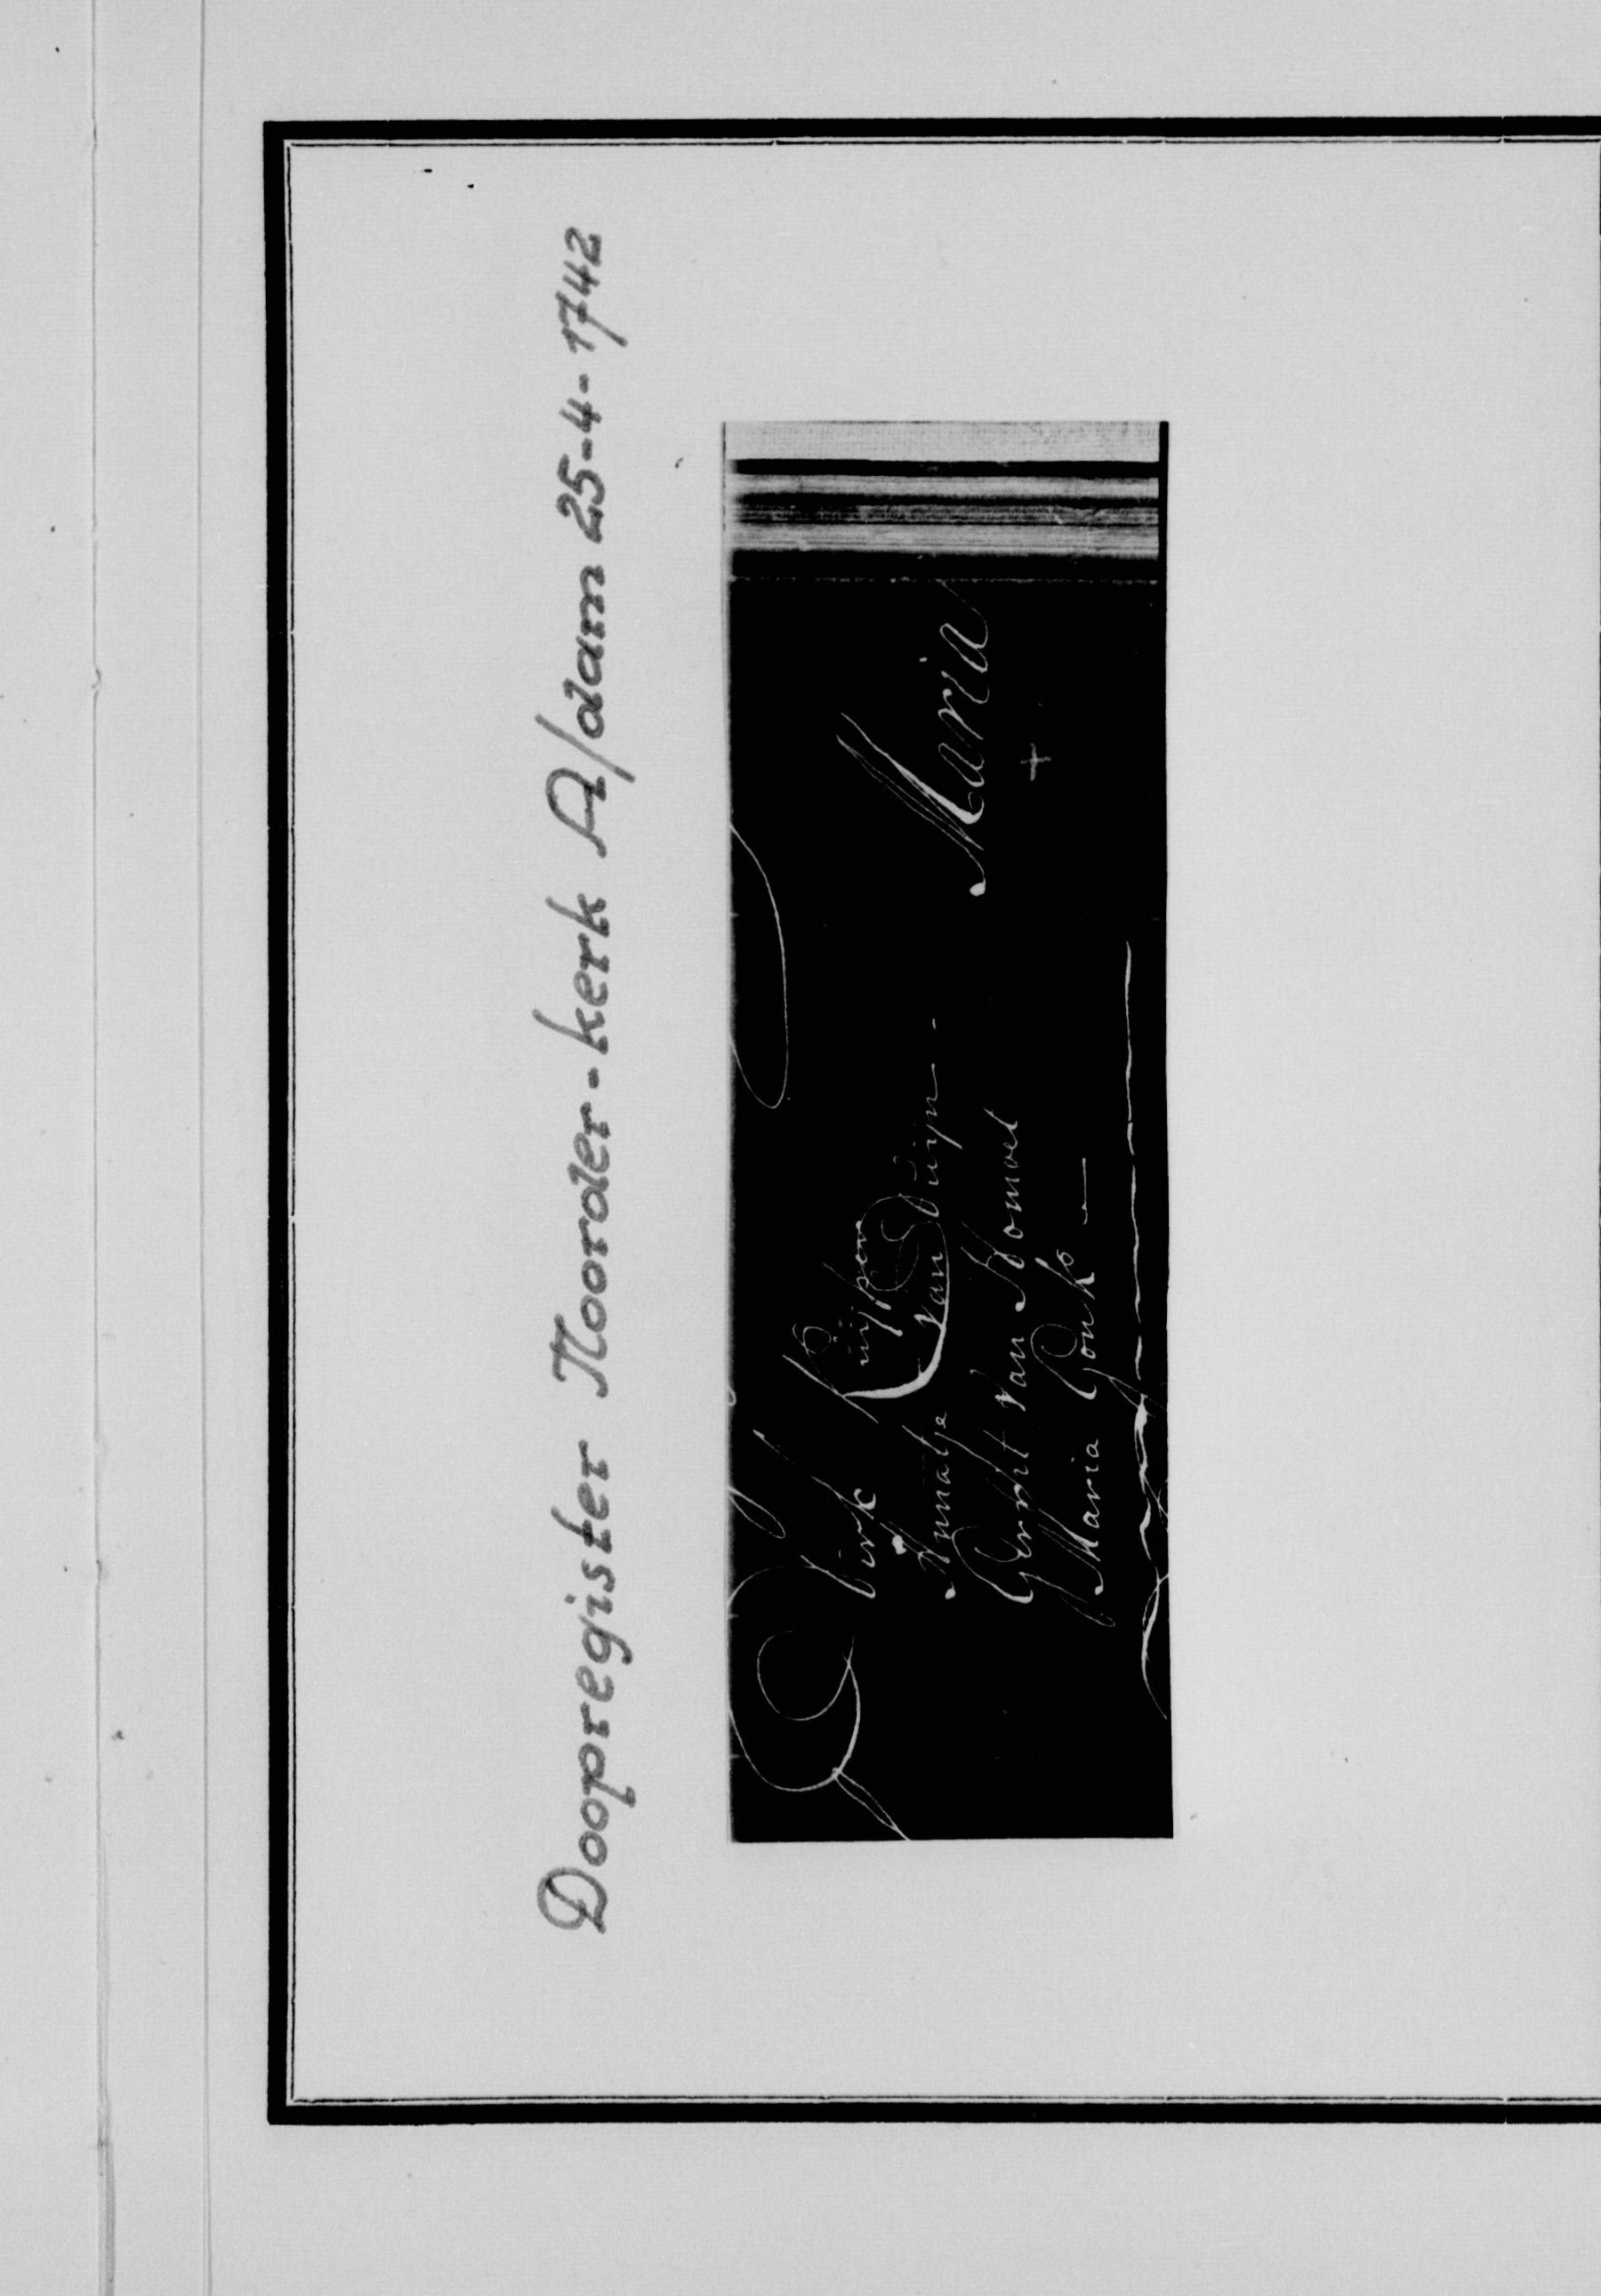 Doopregister Noorder-kerk A/dam 25-4-1742
Dirk
Annatje van Duijn
Gerrit van Bommel Maria
Maria +